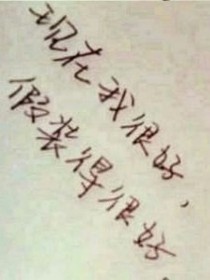 现在我很好,
假装得很好.